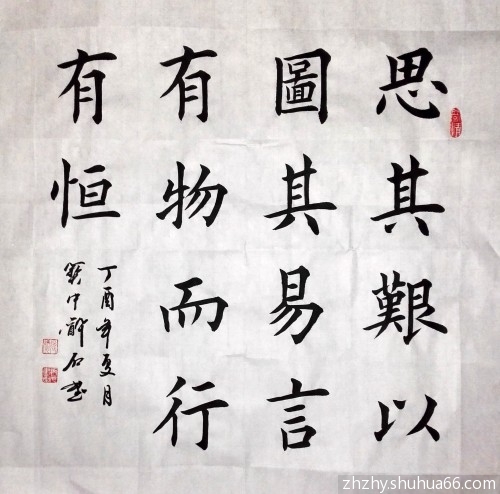 思其艱以
圖其易言
有物而行
有恒
丁酉年夏月
石書
zhzhy.shuhua66.com